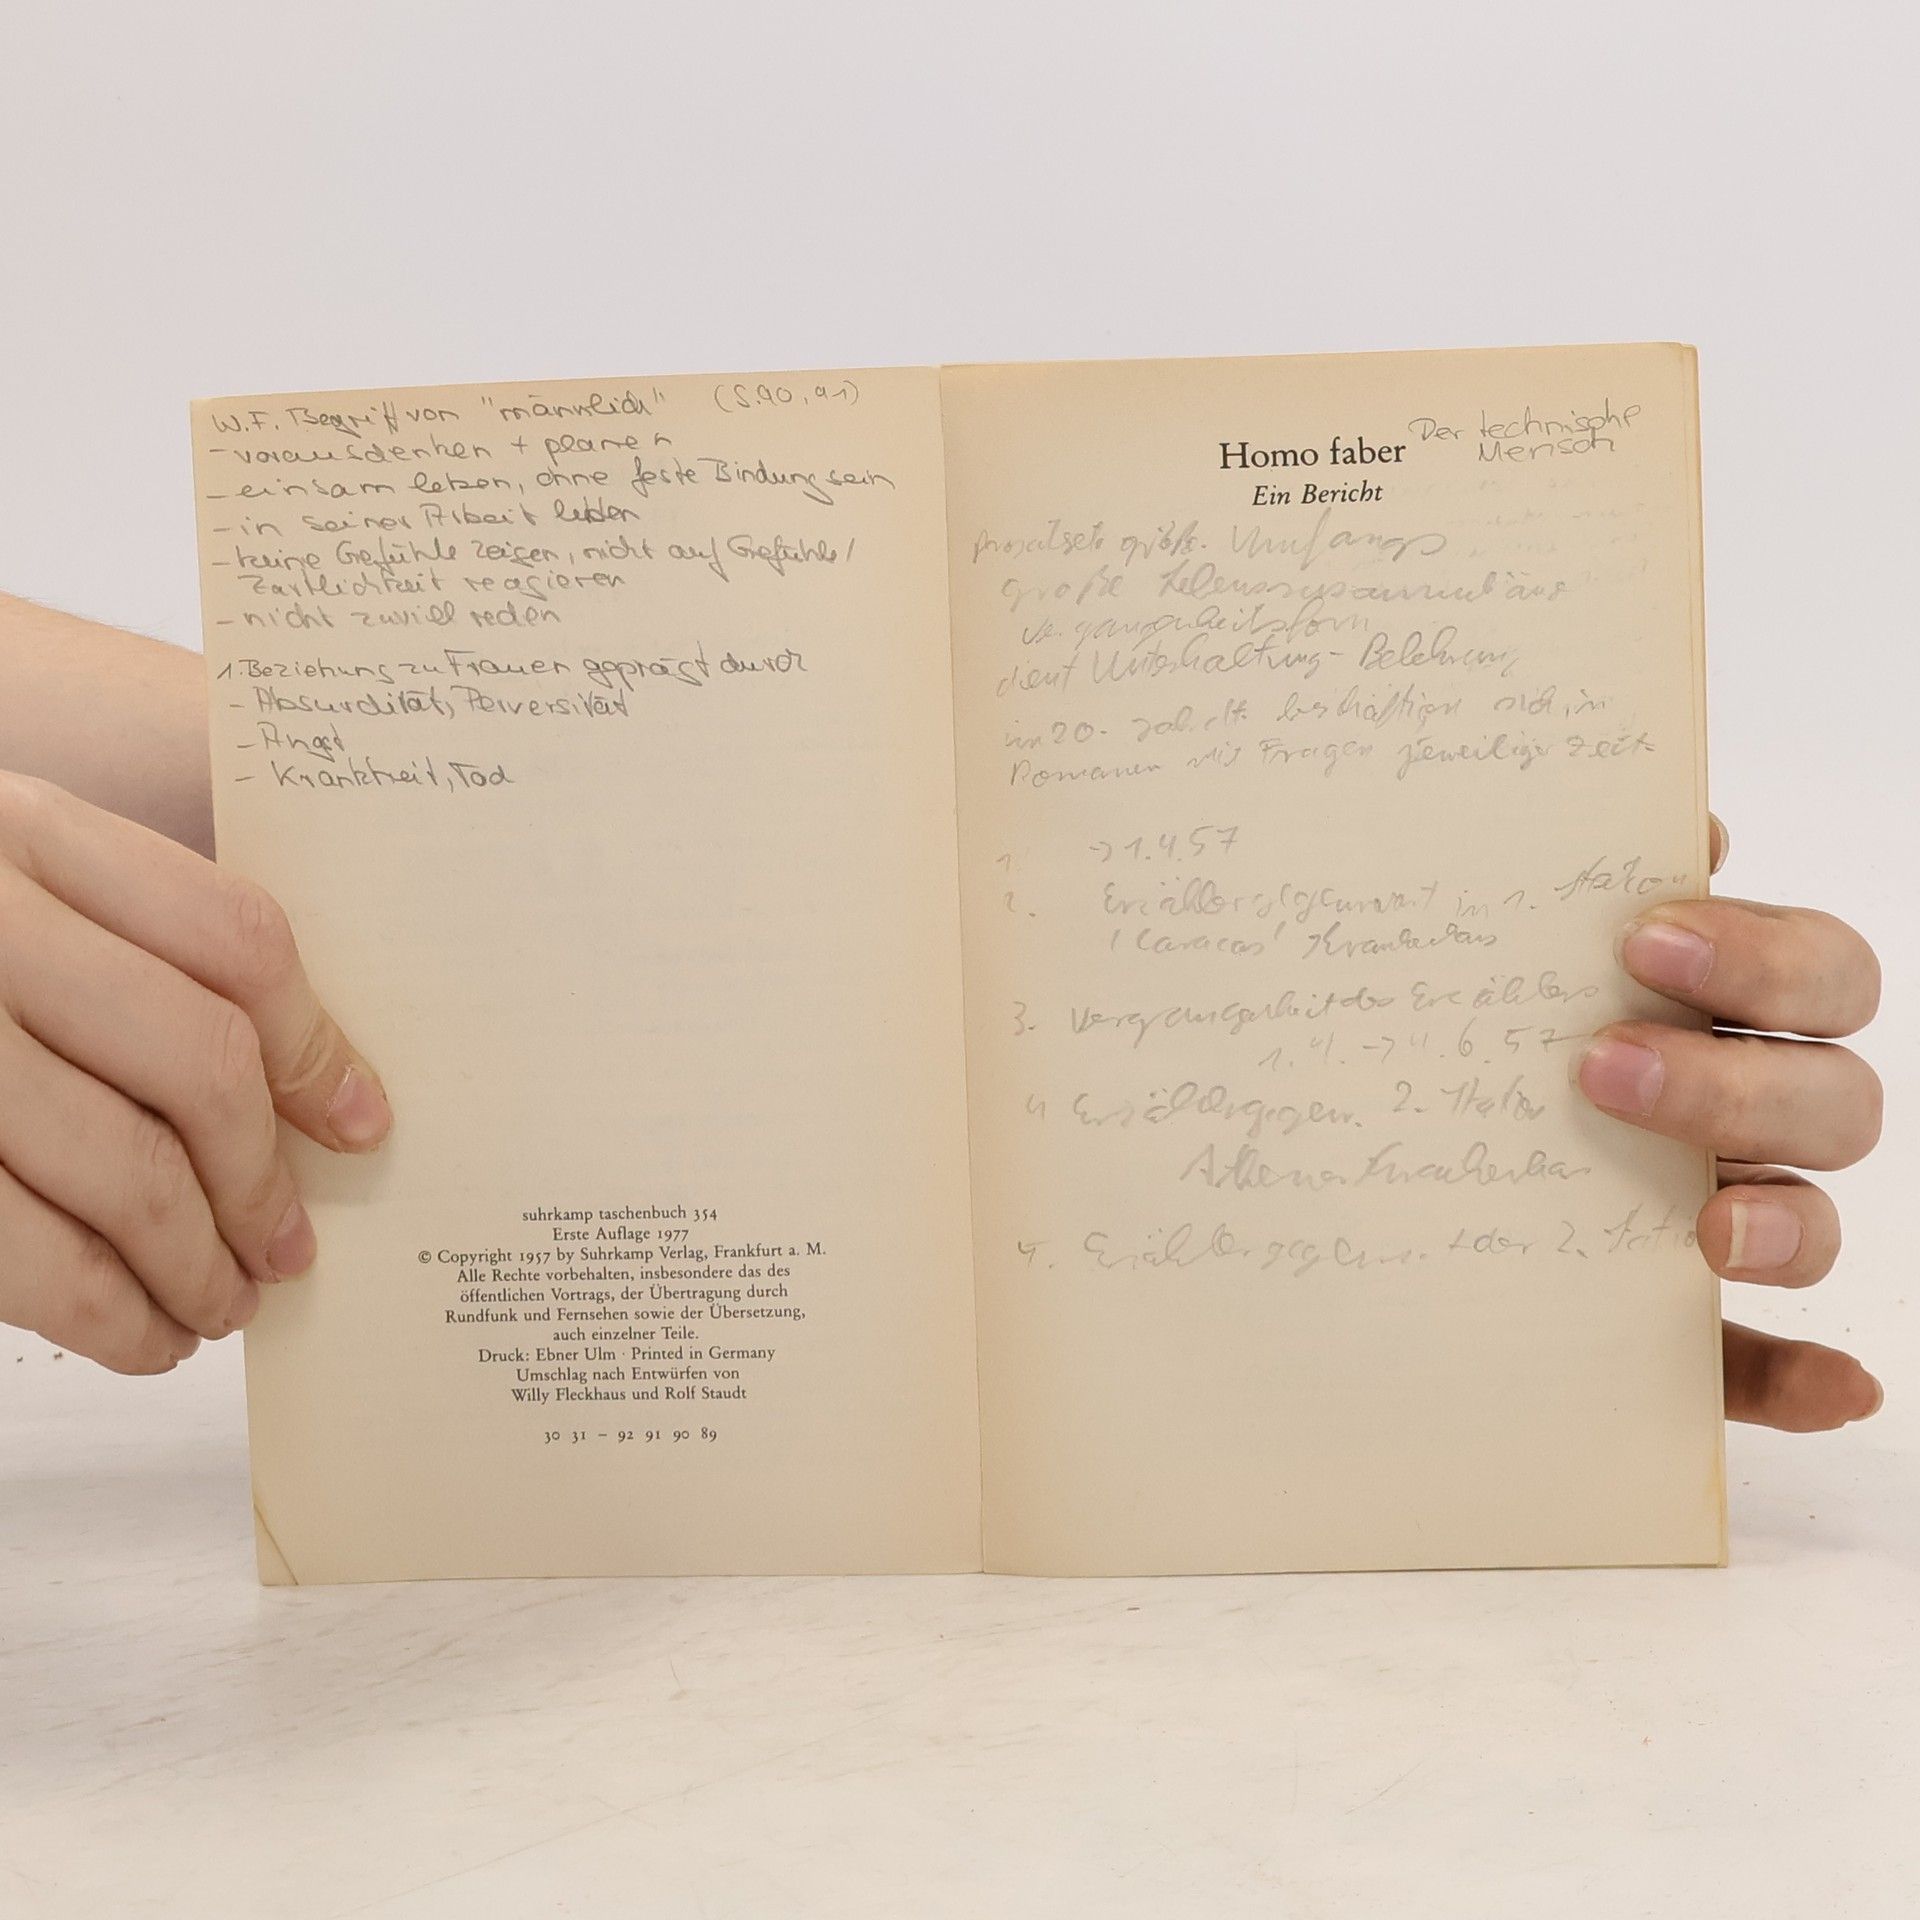 W.F. Begriff von "männlich" (S.90, 91)
- vorausdenken + planen
- einsam leben, ohne feste Bindung sein
- in seiner Arbeit leben
- keine Gefühle zeigen, nicht auf Gefühle/
Zärtlichkeit reagieren
- nicht zuviel reden
1. Beziehung zu Frauen geprägt durch
- Absurdität, Perversität
- Angst
- Krankheit, Tod
suhrkamp taschenbuch 354
Erste Auflage 1977
© Copyright 1957 by Suhrkamp Verlag, Frankfurt a. M.
Alle Rechte vorbehalten, insbesondere das des
öffentlichen Vortrags, der Übertragung durch
Rundfunk und Fernsehen sowie der Übersetzung,
auch einzelner Teile.
Druck: Ebner Ulm · Printed in Germany
Umschlag nach Entwürfen von
Willy Fleckhaus und Rolf Staudt
30 31 – 92 91 90 89
Homo faber Der technische
Mensch
Ein Bericht
größ. Umfangs
große
Vergangenheitsform
dient Unterhaltung - Belehrung
im 20. beschäftigen sich in
Romanen mit Fragen jeweiliger Zeit
1. -> 1.4.57
2. Erzählergegenwart in 1. Station
(Caracas) Krankenhaus
3. Vergangenheit des Erzählers
1.4. -> 4.6.57
4 Erzählergegen. 2. Station
Athener Krankenhaus
Erzählergegenw. der 2. Statio